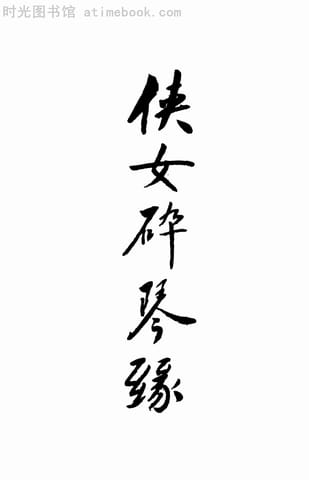 时光图书馆 atimebook.com
侠女碎琴缘